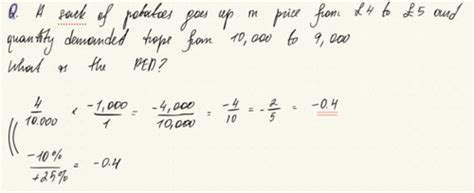 Q. A sack of potatoes goes up in price from £4 to £5 and
quantity demanded drops from 10,000 to 9,000
What is the PED?
4/10.000 × -1,000/1 = -4,000/10,000 = -4/10 = -2/5 = -0.4
-10%/+25% = -0.4